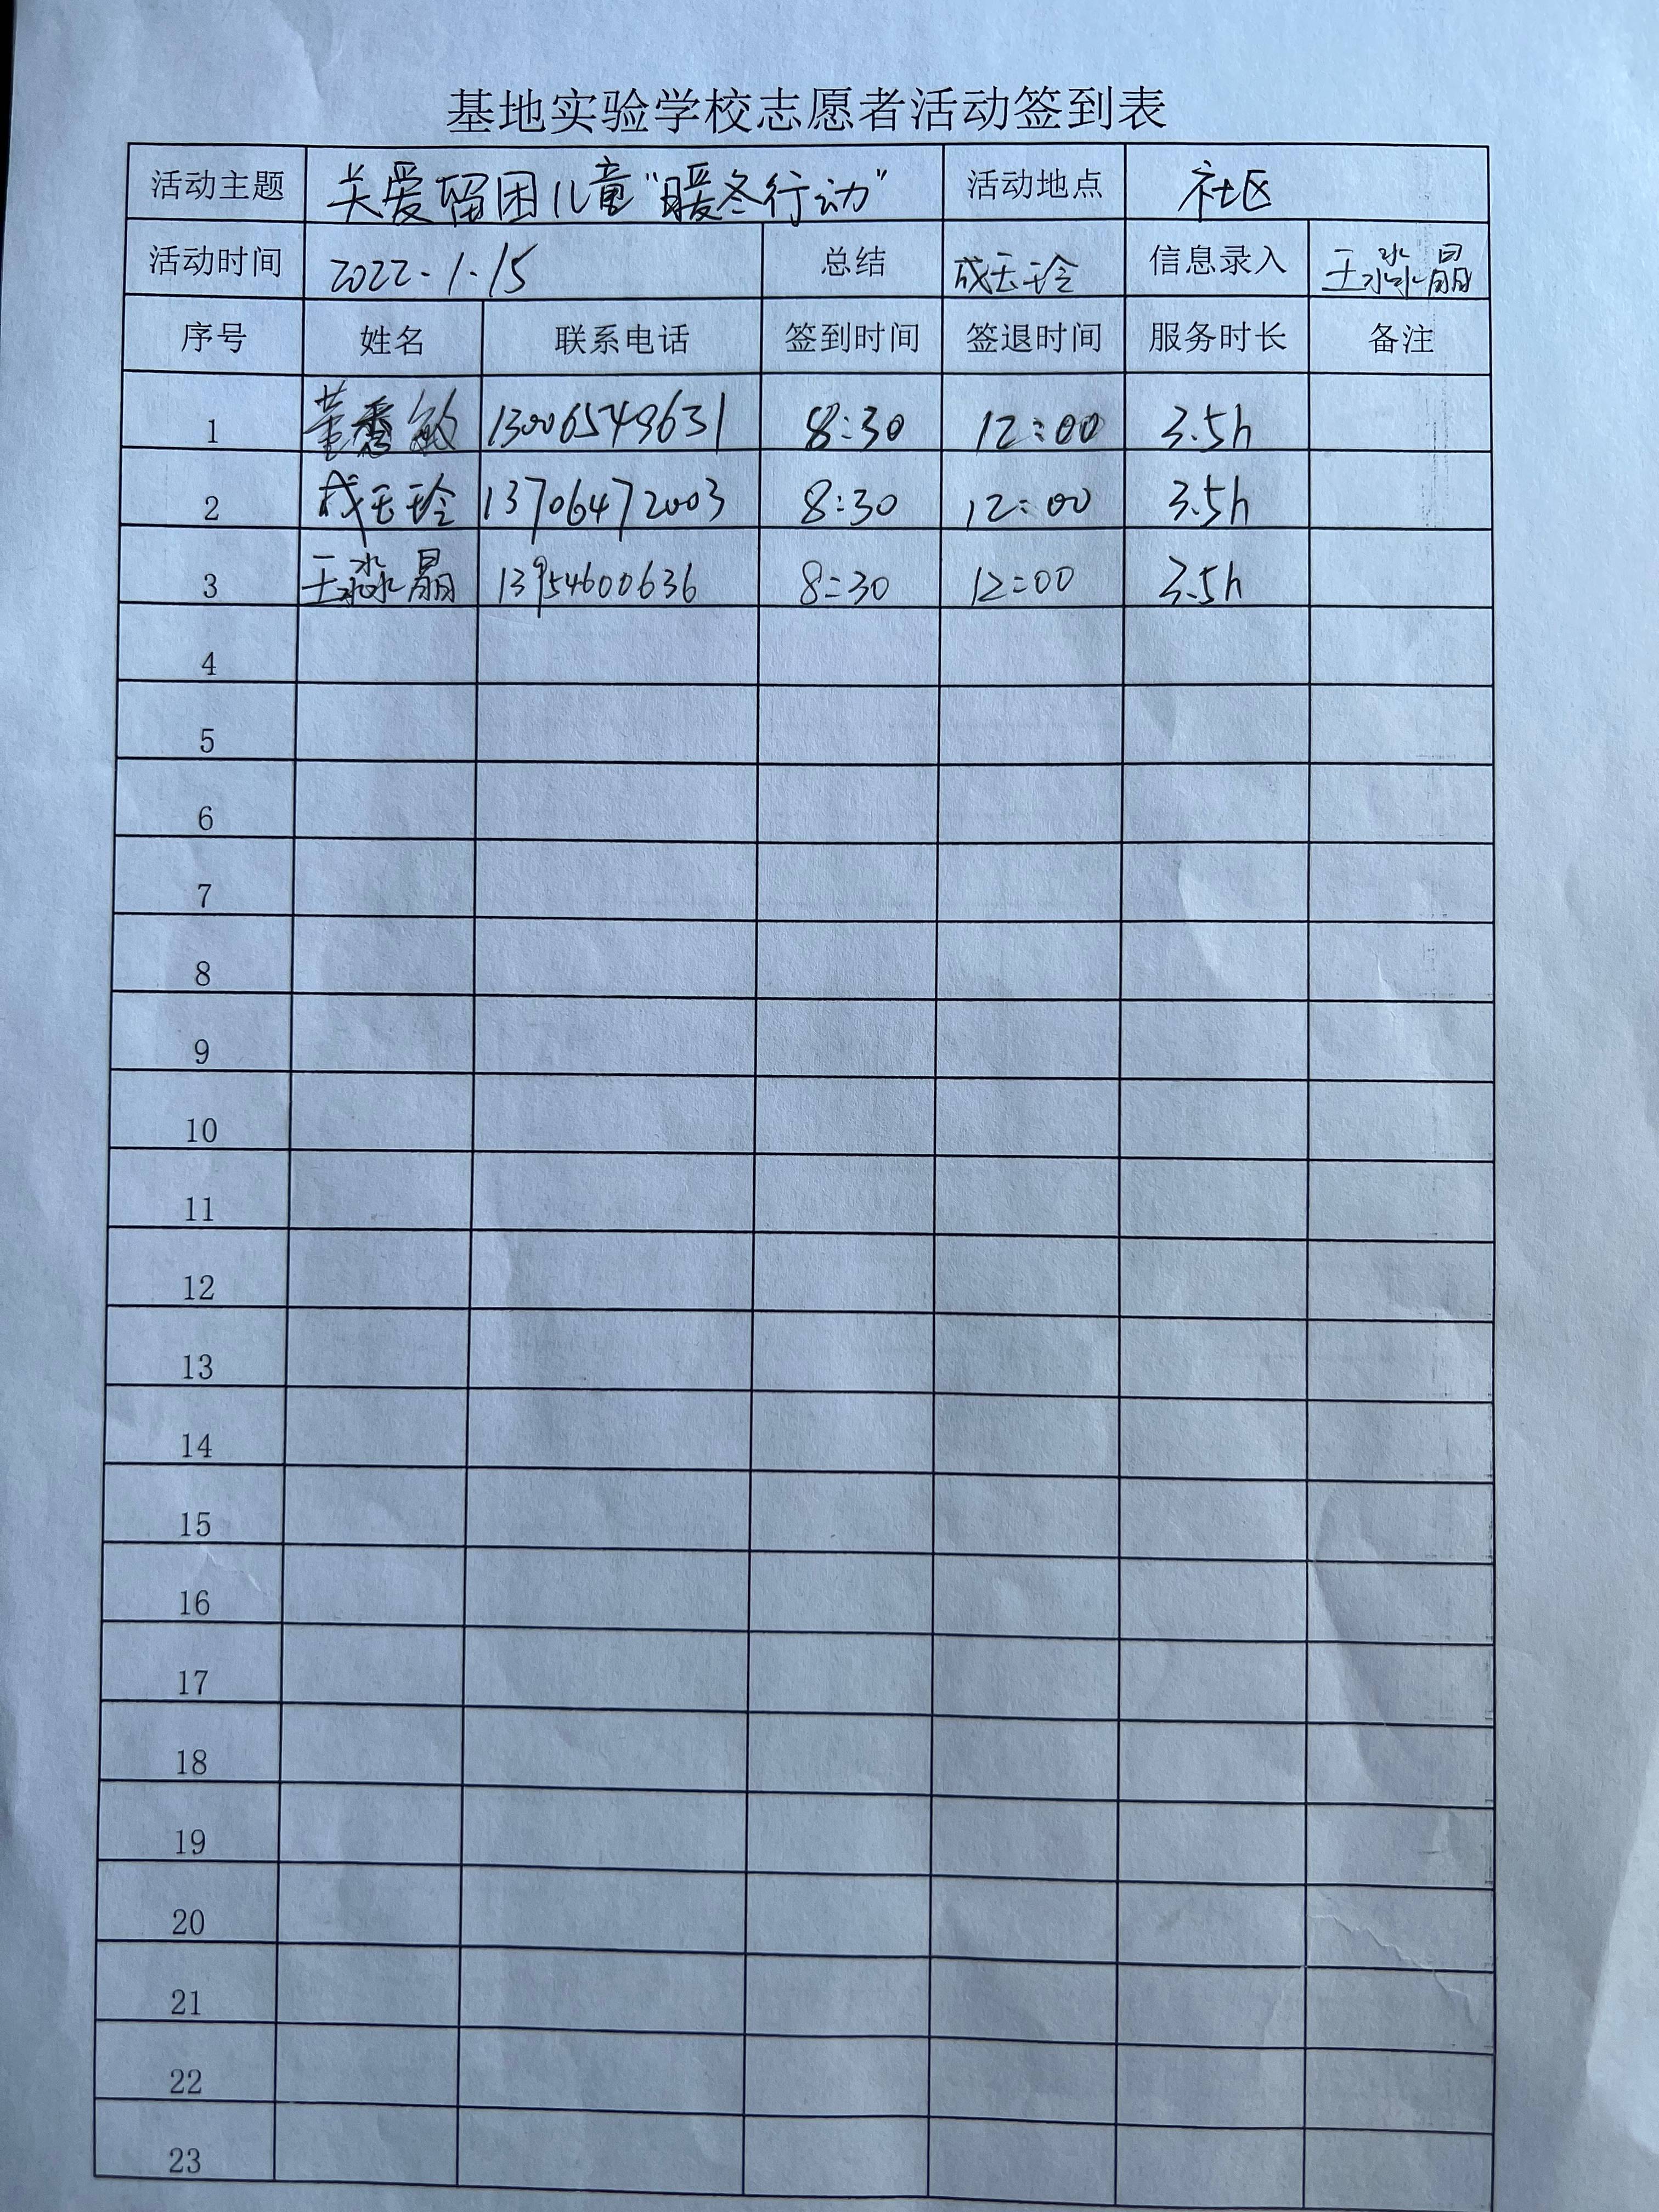 基地实验学校志愿者活动签到表
活动主题 关爱留困儿童“暖冬行动” 活动地点 社区
活动时间 2022.1.15 总结 成玉玲 信息录入 王淼晶
序号 姓名 联系电话 签到时间 签退时间 服务时长 备注
1 董秀敏 13006549631 8:30 12:00 3.5h
2 成玉玲 13706472003 8:30 12:00 3.5h
3 王淼晶 13954600636 8:30 12:00 3.5h
4
5
6
7
8
9
10
11
12
13
14
15
16
17
18
19
20
21
22
23